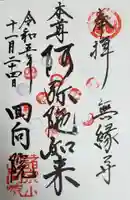 奉拝
無縁寺
本尊
阿弥陀如来
令和五年
十一月二十四
回向院